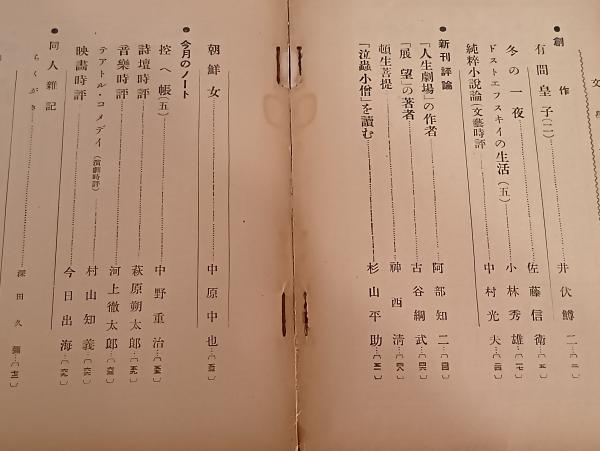 文學
●創作
有間皇子(二)…井伏鱒二
冬の一夜…佐藤信衛
ドストエフスキイの生活(五)…小林秀雄
純粋小説論(文藝時評)…中村光夫
●新刊評論
『人生劇場』の作者…阿部知二
『展望』の著者…古谷綱武
頓生菩提…神西清
『泣蟲小僧』を讀む…杉山平助
朝鮮女…中原中也
●今月のノート
控へ帳(五)…中野重治
詩壇時評…萩原朔太郎
音樂時評…河上徹太郎
テアトル・コメデイ(演劇時評)…村山知義
映畫時評…今日出海
●同人雜記
らくがき…深田久彌